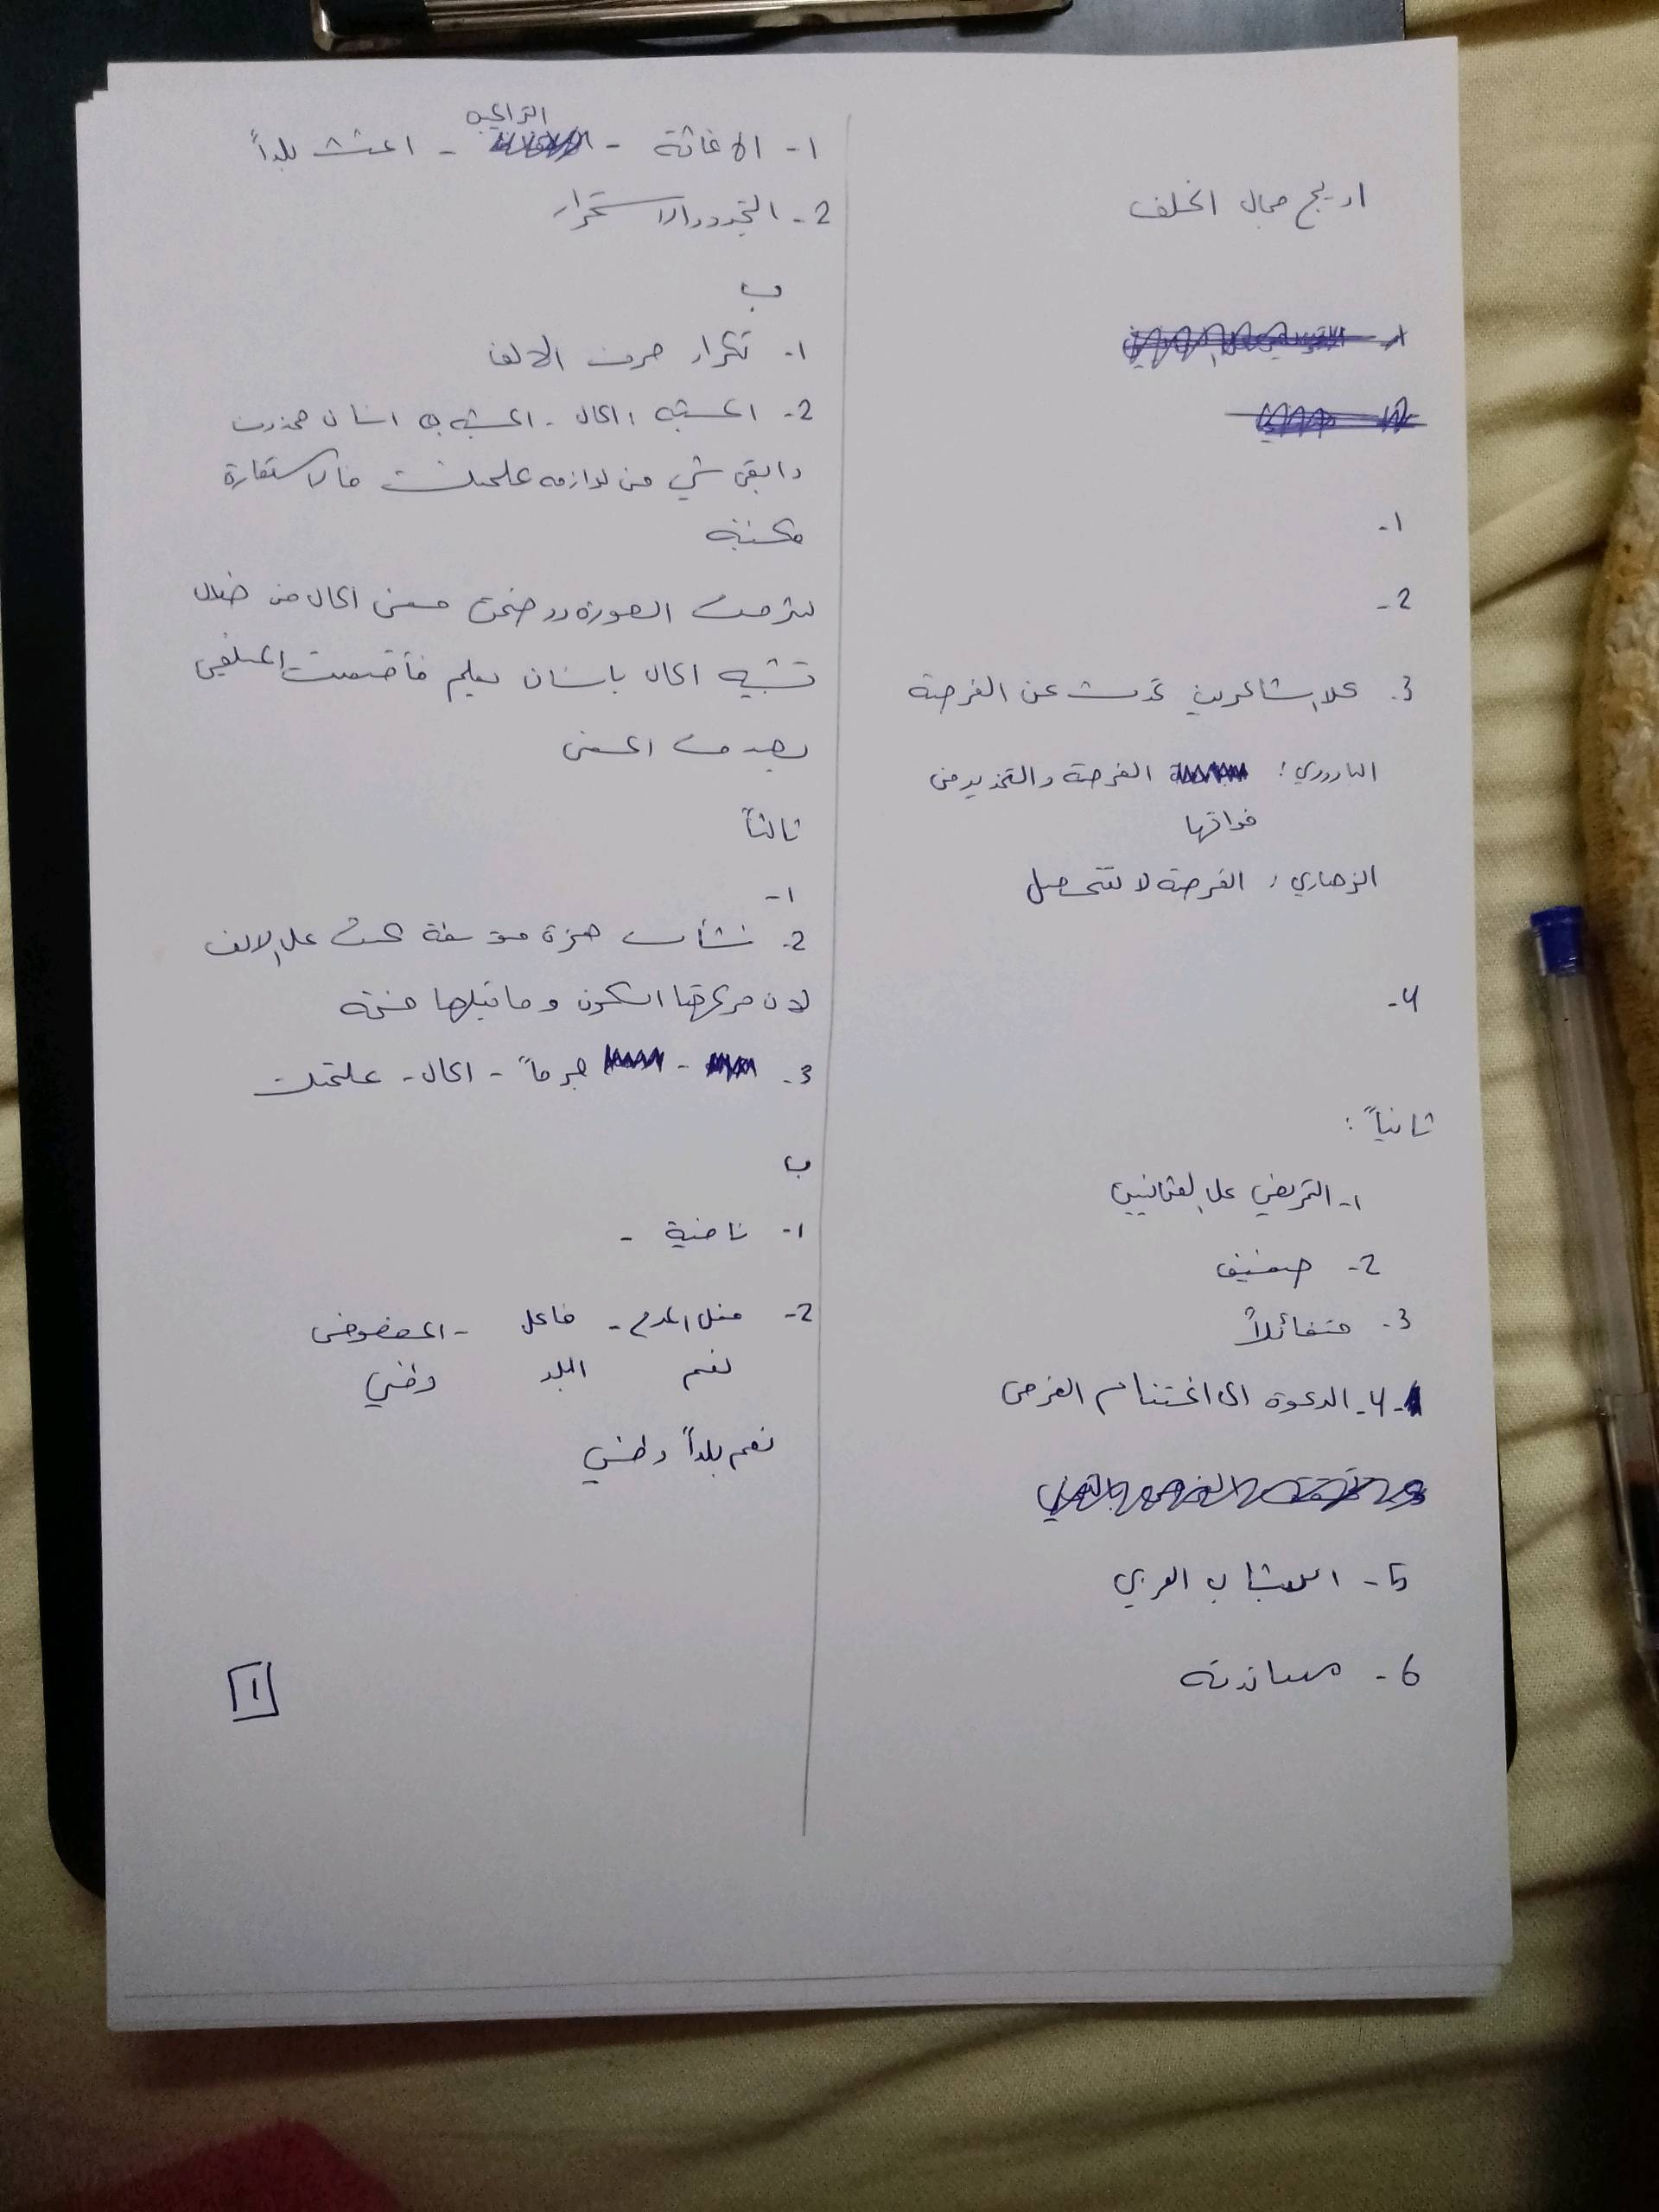 اريج جمال الخلف
1-
2-
3. كلا الشاعرين تحدث عن الفرصة
البارودي: الفرصة والتحذير من
فواتها
الزهاري: الفرصة لا تستحصل
4-
ثانياً:
1- التحريض على العثمانيين
2- ضعيف
3. متفائلاً
4- الدعوة الى اغتنام الفرص
5- الشباب العربي
6- مساندته
1- الاغاثة - التراكيب - بلداً
2- التجدد والاستمرار
ب
1- تكرار حرف الالف
2- المشبه: الحال - المشبه به انسان محذوف
وابقى شي من لوازمه علمتك فالاستعارة
مكنية
الصورة ووضحت معنى الحال من خلال
تشبيه الحال بانسان يعلم فأقنعت المتلقي
بصدق المعنى
ثالثاً
1-
2. نشأت همزة متوسطة كتبت على الالف
لان حركتها السكون وما قبلها فتحة
3- جرماً - الحال - علمتك
ب
1- ناصية -
2- فعل المدح - فاعل - المخصوص
نعم البلد وطني
نعم بلداً وطني
1